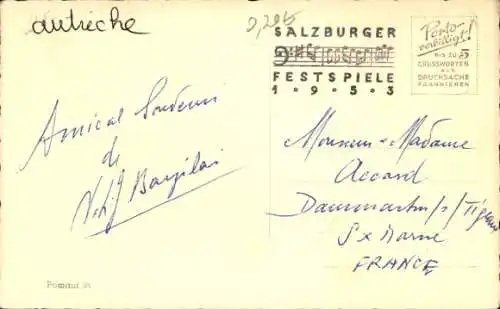 autriche
0,20€
SALZBURGER
FESTSPIELE
1 • 9 • 5 • 3
Porto
verbilligt!
BIS ZU 5
GRUSSWORTEN
ALS
DRUCKSACHE
FRANKIEREN
Amical Souvenir
de
Monsieur & Madame
Accard
Dammartin s/ Tigeaux
S x Marne
FRANCE